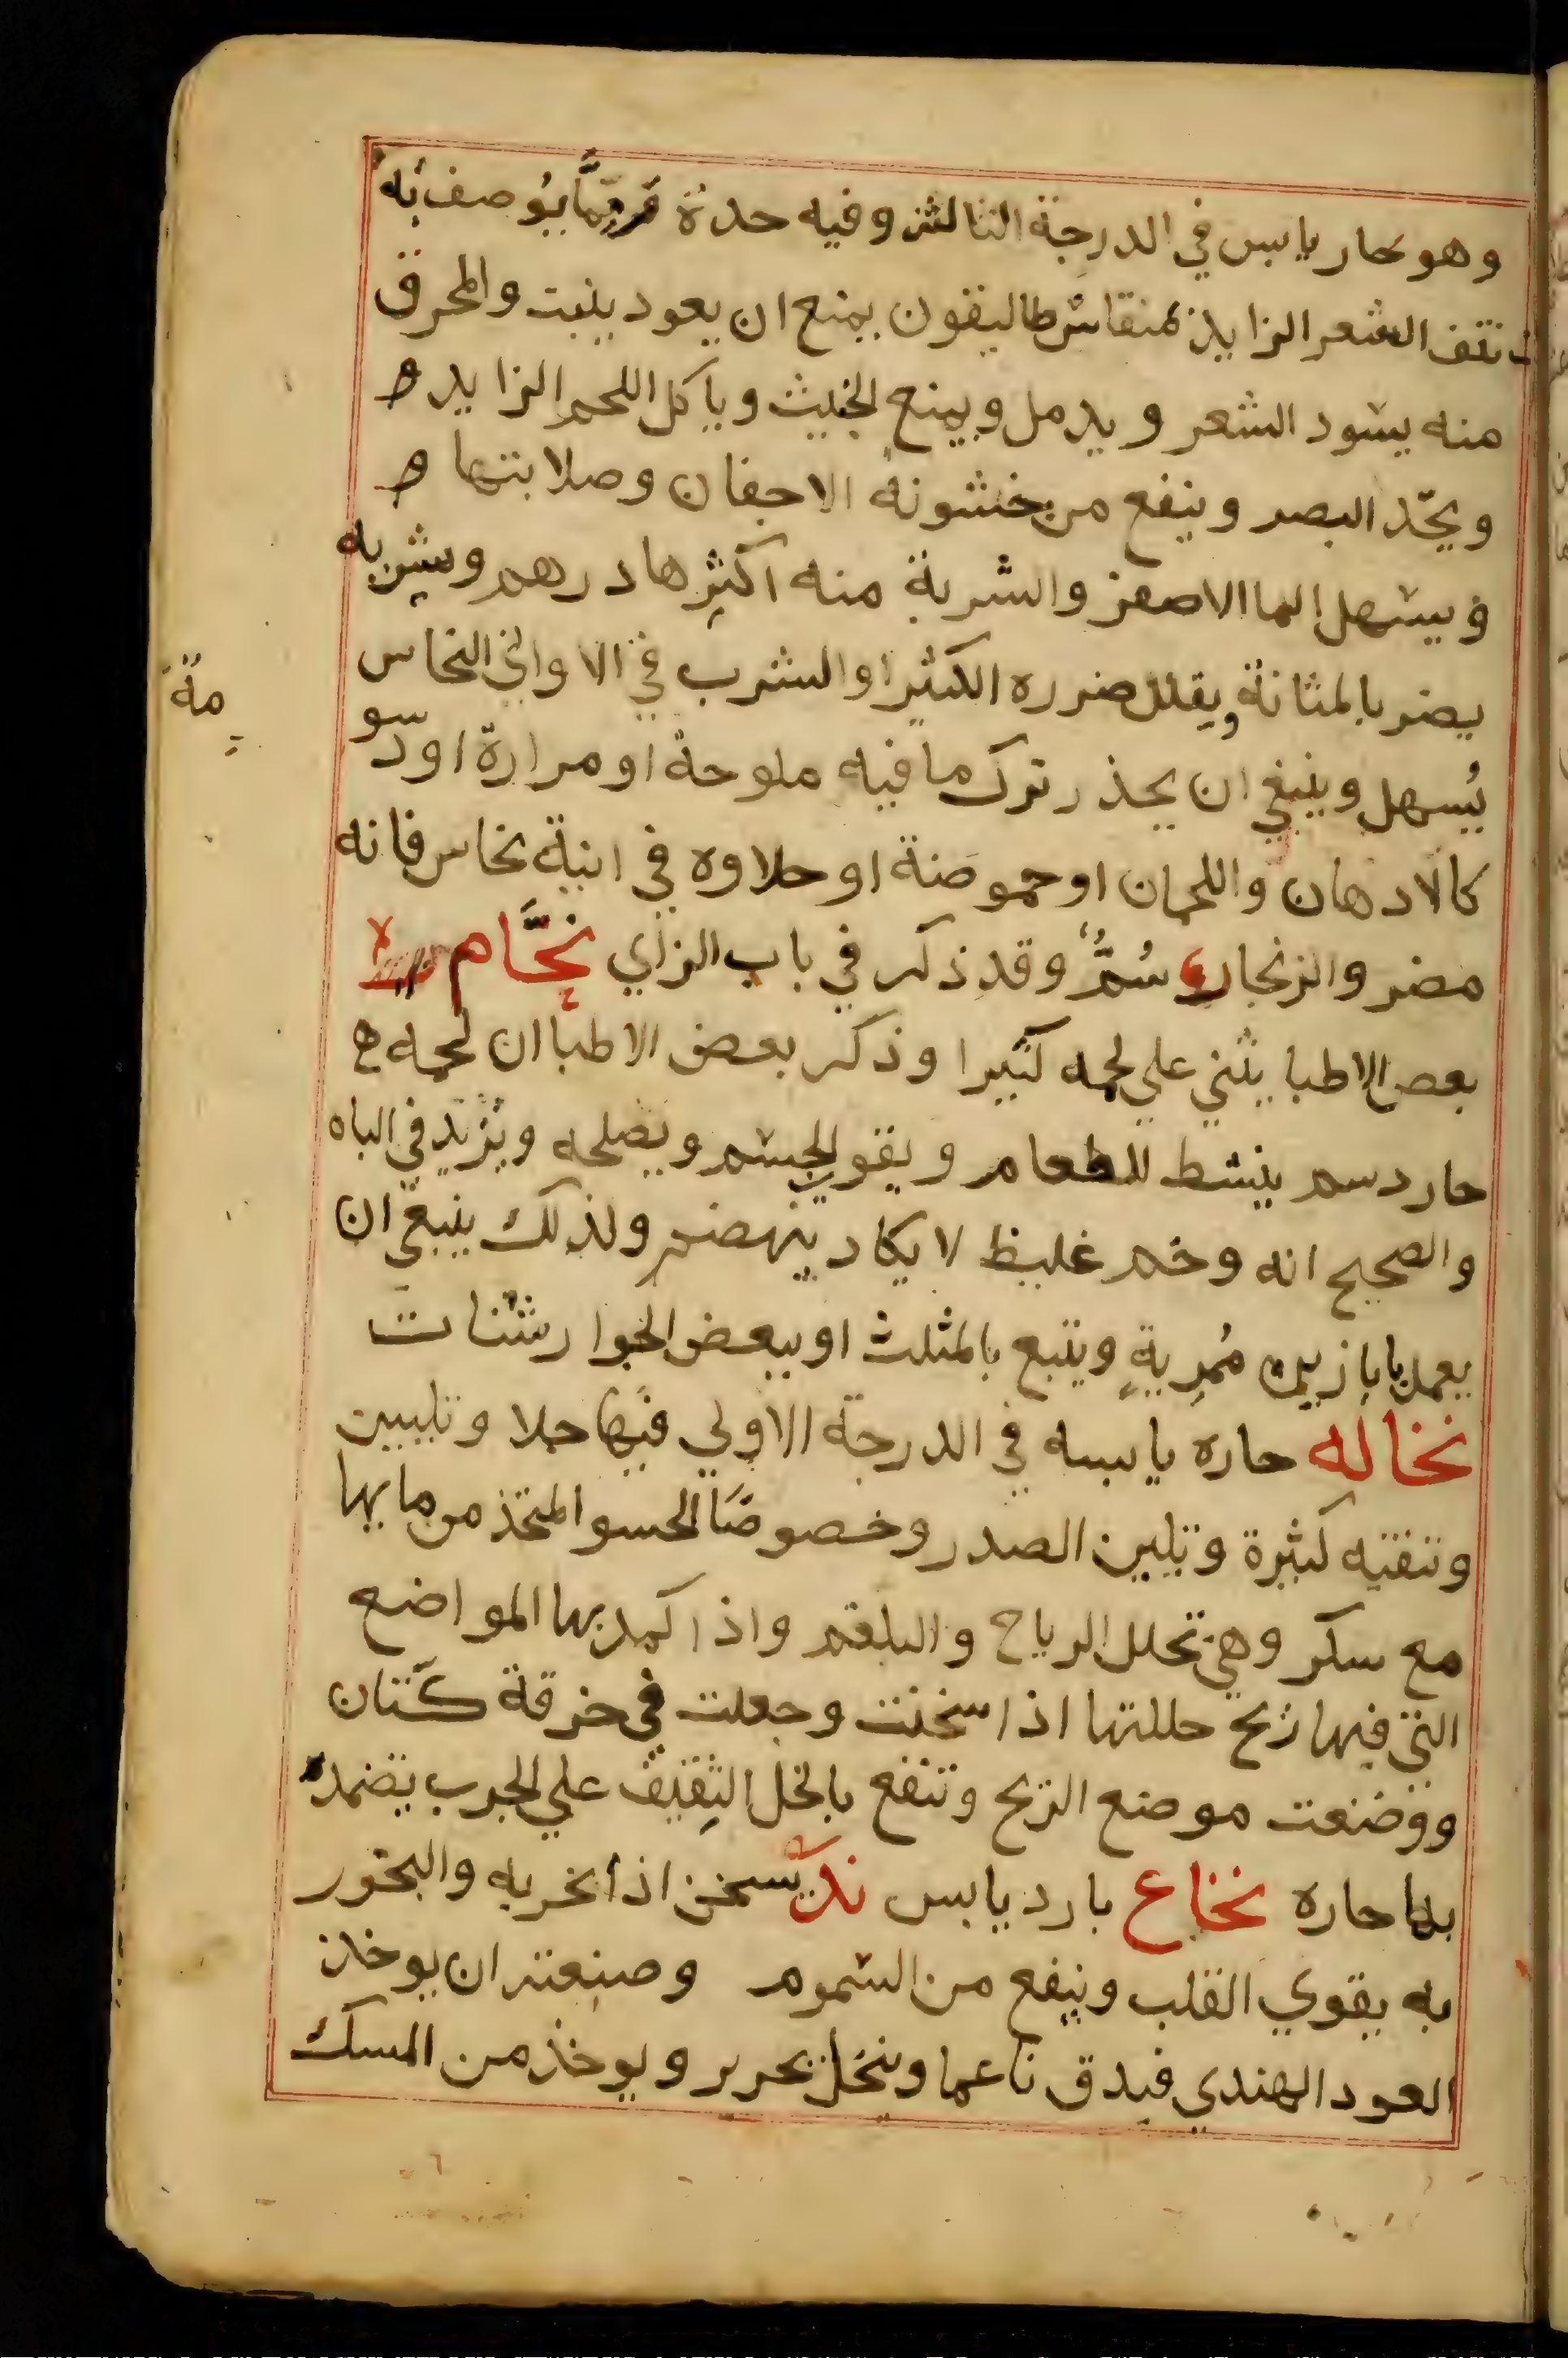 وهو حار يابس في الدرجة الثالثة وفيه حدة ومما يوصف به
نتف الشعر الزايد بمنقاش طاليقون يمنع ان يعود ينبت والمحرق
منه يسود الشعر ويدمل ويمنع الخبيث وياكل اللحم الزايد
ويحّد البصر وينفع من خشونة الاجفان وصلابتها
ويسهل الما الاصفر والشربة منه اكثرها درهم وشربه
يضر بالمثانة ويقلل ضرره الكثيرا والشرب في الاواني النحاس
يُسهل وينبغي ان يحذر ترك ما فيه ملوحة او مرارة او دسو
مة
كالادهان واللحمان او حموضة او حلاوه في انية نحاس فانه
مضر والزنجار سُمٌّ وقد ذكر في باب الزاي نحَّام
بعض الاطبا يثني علي لحمه كثيرا وذكر بعض الاطبا ان لحمه
حار دسم ينشط للطعام ويقوي الجسم ويصلحه ويزيد في الباه
والصحيح انه وخم غليظ لا يكاد ينهضم ولذلك ينبغي ان
يعمل بابازير مُمرية ويتبع بالمثلث او ببعض الجوارشنات
نخاله حاره يابسه في الدرجة الاولي فيها جلا وتليين
وتنقيه كثيرة وتلين الصدر وخصوصًا الحسو المتخذ من مايها
مع سكر وهي تحلل الرياح والبلغم واذا كمد بها المواضع
التي فيها ريح حللتها اذا سخنت وجعلت في خرقة كتّان
ووضعت موضع الريح وتنفع بالخل الثقيف علي الجرب يضمد
بها حاره نخاع بارد يابس ندّ يسخن اذا بخر به والبخور
به يقوي القلب وينفع من السموم وصنعته ان يوخذ
العود الهندي فيدق ناعما وينخل بحرير ويوخذ من المسك